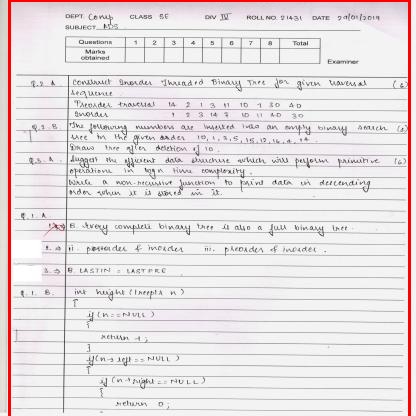 DEPT. Comp CLASS SE DIV IV ROLL NO. 21431 DATE 29/01/2019
SUBJECT ADS
Questions 1 2 3 4 5 6 7 8 Total
Marks obtained
Examiner
Q.2 A Construct Inorder Threaded Binary Tree for given traversal (6)
sequence.
Preorder traversal 14 2 1 3 11 10 7 30 40
Inorder 1 2 3 14 7 10 11 40 30
Q.2.B The following numbers are inserted into an empty binary search
tree in the given order 10, 1, 3, 5, 15, 12, 16, 4, 14
Draw tree after deletion of 10.
Q.3.A Suggest the efficient data structure which will perform primitive (6)
operations in log n time complexity.
Write a non-recursive function to print data in descending
order when it is stored in it.
Q.1.A.
B. Every complete binary tree is also a full binary tree.
2. ⇒ ii. postorder & inorder iii. preorder & inorder.
3. ⇒ B. LASTIN = LASTPRE
Q.1.B. int height (treeptr n)
{
if (n == NULL)
{
return -1;
}
if (n → left == NULL)
{
if (n → right == NULL)
{
return 0;